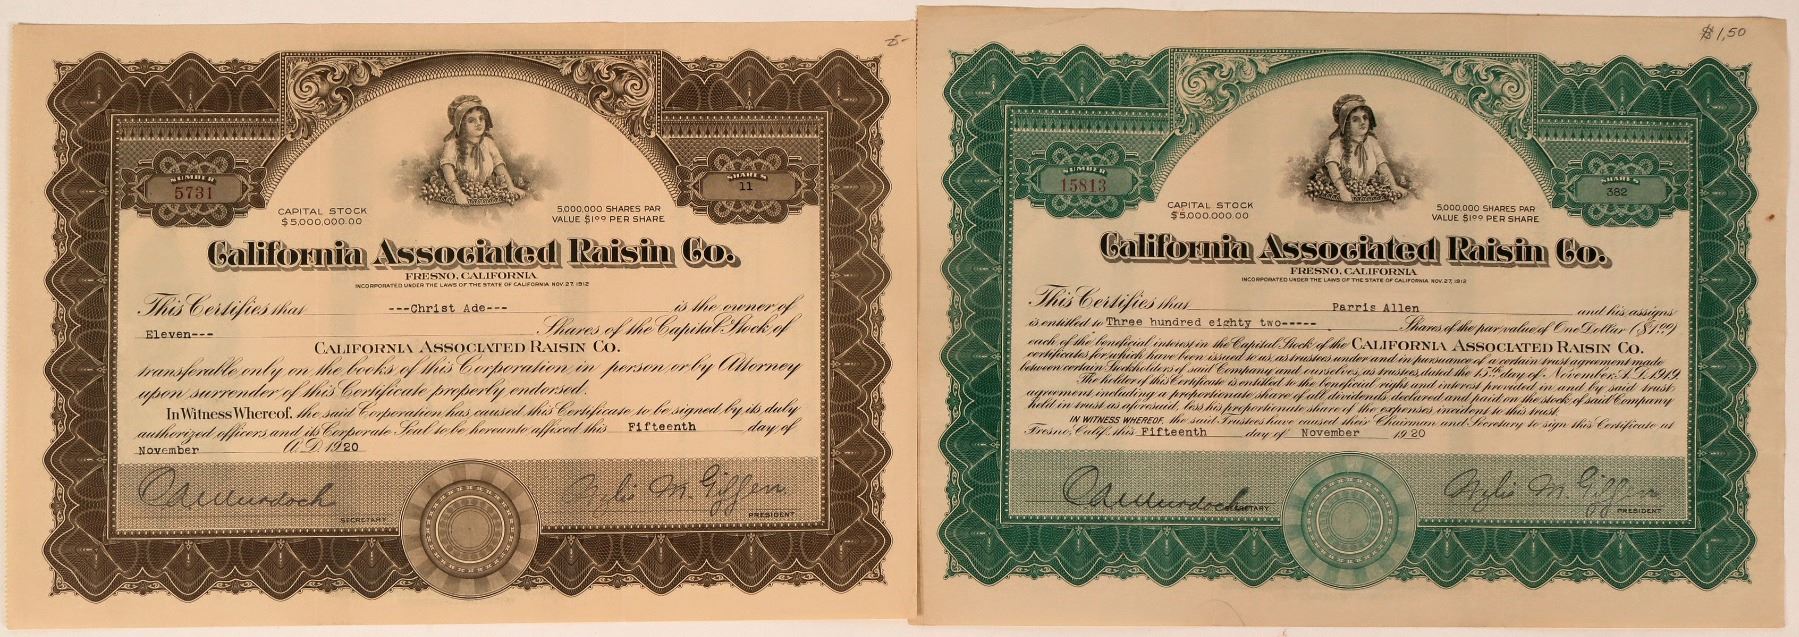 5-
NUMBER
5731
SHARES
11
CAPITAL STOCK
$5,000,000.00
5,000,000 SHARES PAR
VALUE $1⁰⁰ PER SHARE
California Associated Raisin Co.
FRESNO, CALIFORNIA
INCORPORATED UNDER THE LAWS OF THE STATE OF CALIFORNIA NOV. 27, 1912
This Certifies that ---Christ Ade--- is the owner of
Eleven--- Shares of the Capital Stock of
CALIFORNIA ASSOCIATED RAISIN CO.
transferable only on the books of this Corporation in person or by Attorney
upon surrender of this Certificate properly endorsed.
In Witness Whereof, the said Corporation has caused this Certificate to be signed by its duly
authorized officers and its Corporate Seal to be hereunto affixed this Fifteenth day of
November A.D. 1920
CA Murdoch
SECRETARY
Wylie M. Giffen
PRESIDENT
$1,50
NUMBER
15813
SHARES
382
CAPITAL STOCK
$5,000,000.00
5,000,000 SHARES PAR
VALUE $1⁰⁰ PER SHARE
California Associated Raisin Co.
FRESNO, CALIFORNIA
INCORPORATED UNDER THE LAWS OF THE STATE OF CALIFORNIA NOV. 27, 1912
This Certifies that Parris Allen and his assigns
is entitled to Three hundred eighty two----- Shares of the par value of One Dollar ($1.00)
each of the beneficial interest in the Capital Stock of the CALIFORNIA ASSOCIATED RAISIN CO.
certificates for which have been issued to us, as trustees under and in pursuance of a certain trust agreement made
between certain Stockholders of said Company and ourselves, as trustees, dated the 15th day of November A.D. 1919
The holder of this Certificate is entitled to the beneficial right and interest provided in and by said trust
agreement including a proportionate share of all dividends declared and paid on the stock of said Company
held in trust as aforesaid, less his proportionate share of the expenses incident to this trust.
IN WITNESS WHEREOF, the said Trustees have caused their Chairman and Secretary to sign this Certificate at
Fresno, Calif. this Fifteenth day of November 1920
CA Murdoch
SECRETARY
Wylie M. Giffen
PRESIDENT